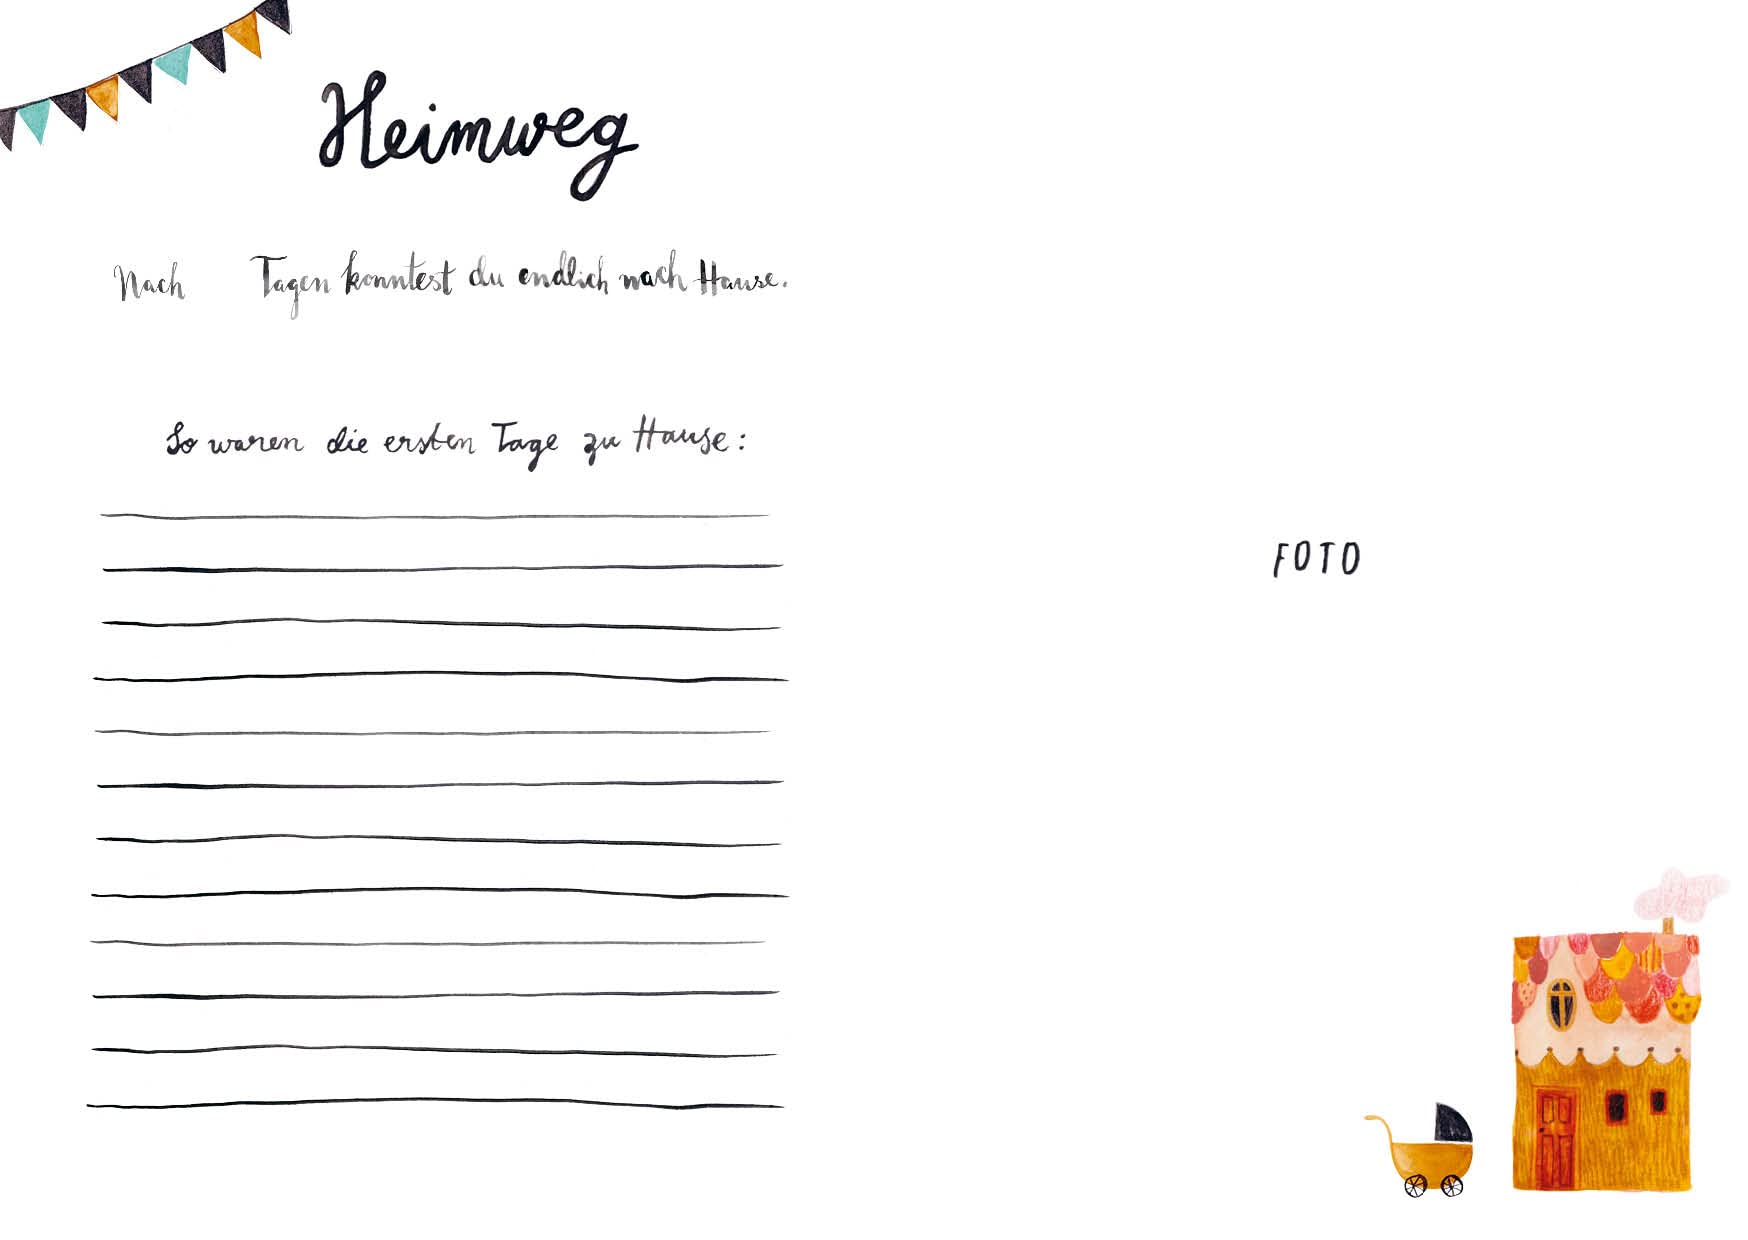 Heimweg
Nach Tagen konntest du endlich nach Hause.
So waren die ersten Tage zu Hause:
FOTO